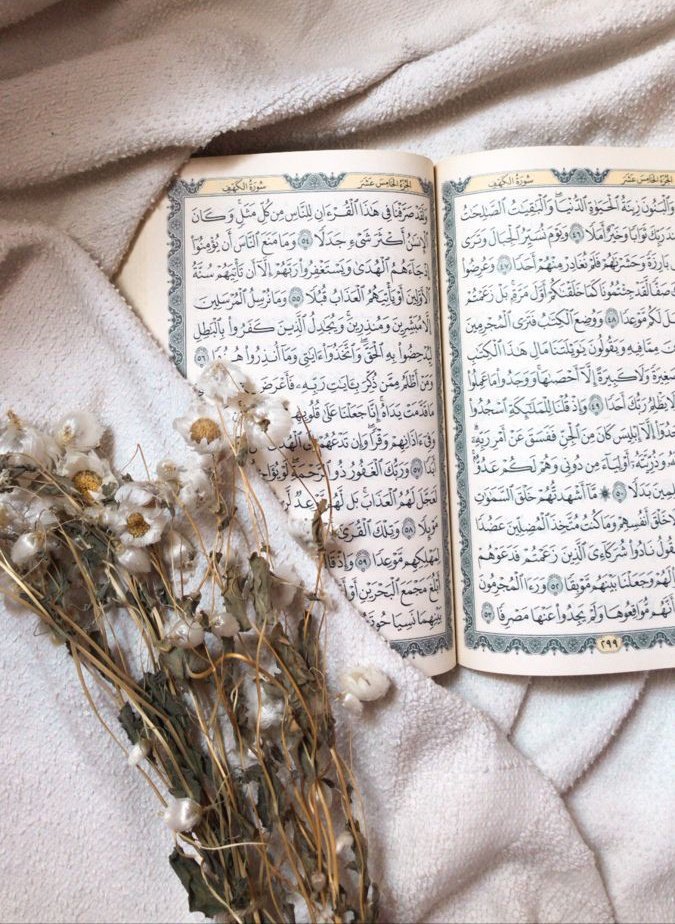 الجزء الخامس عشر سورة الكهف
وَالْبَنُونَ زِينَةُ الْحَيَوٰةِ الدُّنْيَا ۖ وَالْبَٰقِيَٰتُ الصَّٰلِحَٰتُ
رَبِّكَ ثَوَابًا وَخَيْرٌ أَمَلًا ٤٦ وَيَوْمَ نُسَيِّرُ الْجِبَالَ وَتَرَى
بَارِزَةً وَحَشَرْنَٰهُمْ فَلَمْ نُغَادِرْ مِنْهُمْ أَحَدًا ٤٧ وَعُرِضُوا
صَفًّا لَّقَدْ جِئْتُمُونَا كَمَا خَلَقْنَٰكُمْ أَوَّلَ مَرَّةٍۭ ۚ بَلْ زَعَمْتُمْ
لَكُم مَّوْعِدًا ٤٨ وَوُضِعَ الْكِتَٰبُ فَتَرَى الْمُجْرِمِينَ
مِمَّا فِيهِ وَيَقُولُونَ يَٰوَيْلَتَنَا مَالِ هَٰذَا الْكِتَٰبِ
صَغِيرَةً وَلَا كَبِيرَةً إِلَّآ أَحْصَىٰهَا ۚ وَوَجَدُوا مَا عَمِلُوا
وَلَا يَظْلِمُ رَبُّكَ أَحَدًا ٤٩ وَإِذْ قُلْنَا لِلْمَلَٰٓئِكَةِ اسْجُدُوا
إِلَّآ إِبْلِيسَ كَانَ مِنَ الْجِنِّ فَفَسَقَ عَنْ أَمْرِ رَبِّهِ
وَذُرِّيَّتَهُ أَوْلِيَآءَ مِن دُونِي وَهُمْ لَكُمْ عَدُوٌّ
بَدَلًا ٥٠ ۞ مَّآ أَشْهَدتُّهُمْ خَلْقَ السَّمَٰوَٰتِ
خَلْقَ أَنفُسِهِمْ وَمَا كُنتُ مُتَّخِذَ الْمُضِلِّينَ عَضُدًا
نَادُوا شُرَكَآءِيَ الَّذِينَ زَعَمْتُمْ فَدَعَوْهُمْ
لَهُمْ وَجَعَلْنَا بَيْنَهُم مَّوْبِقًا ٥٢ وَرَءَا الْمُجْرِمُونَ
أَنَّهُم مُّوَاقِعُوهَا وَلَمْ يَجِدُوا عَنْهَا مَصْرِفًا ٥٣
٢٩٩
الجزء الخامس عشر سورة الكهف
وَلَقَدْ صَرَّفْنَا فِي هَٰذَا الْقُرْءَانِ لِلنَّاسِ مِن كُلِّ مَثَلٍ ۚ وَكَانَ
الْإِنسَٰنُ أَكْثَرَ شَيْءٍ جَدَلًا ٥٤ وَمَا مَنَعَ النَّاسَ أَن يُؤْمِنُوٓا
إِذْ جَآءَهُمُ الْهُدَىٰ وَيَسْتَغْفِرُوا رَبَّهُمْ إِلَّآ أَن تَأْتِيَهُمْ سُنَّةُ
الْأَوَّلِينَ أَوْ يَأْتِيَهُمُ الْعَذَابُ قُبُلًا ٥٥ وَمَا نُرْسِلُ الْمُرْسَلِينَ
إِلَّا مُبَشِّرِينَ وَمُنذِرِينَ ۚ وَيُجَٰدِلُ الَّذِينَ كَفَرُوا بِالْبَٰطِلِ
لِيُدْحِضُوا بِهِ الْحَقَّ ۖ وَاتَّخَذُوٓا ءَايَٰتِي وَمَآ أُنذِرُوا هُزُوًا ٥٦
وَمَنْ أَظْلَمُ مِمَّن ذُكِّرَ بِـَٔايَٰتِ رَبِّهِ فَأَعْرَضَ
مَا قَدَّمَتْ يَدَاهُ ۚ إِنَّا جَعَلْنَا عَلَىٰ قُلُوبِهِمْ
وَفِيٓ ءَاذَانِهِمْ وَقْرًا ۖ وَإِن تَدْعُهُمْ إِلَى الْهُدَىٰ
٥٧ وَرَبُّكَ الْغَفُورُ ذُو الرَّحْمَةِ ۖ لَوْ يُؤَاخِذُهُم
لَعَجَّلَ لَهُمُ الْعَذَابَ ۚ بَل لَّهُم مَّوْعِدٌ
مَوْئِلًا ٥٨ وَتِلْكَ الْقُرَىٰٓ
لِمَهْلِكِهِم مَّوْعِدًا ٥٩ وَإِذْ قَالَ
أَبْلُغَ مَجْمَعَ الْبَحْرَيْنِ أَوْ
بَيْنِهِمَا نَسِيَا حُوتَهُمَا